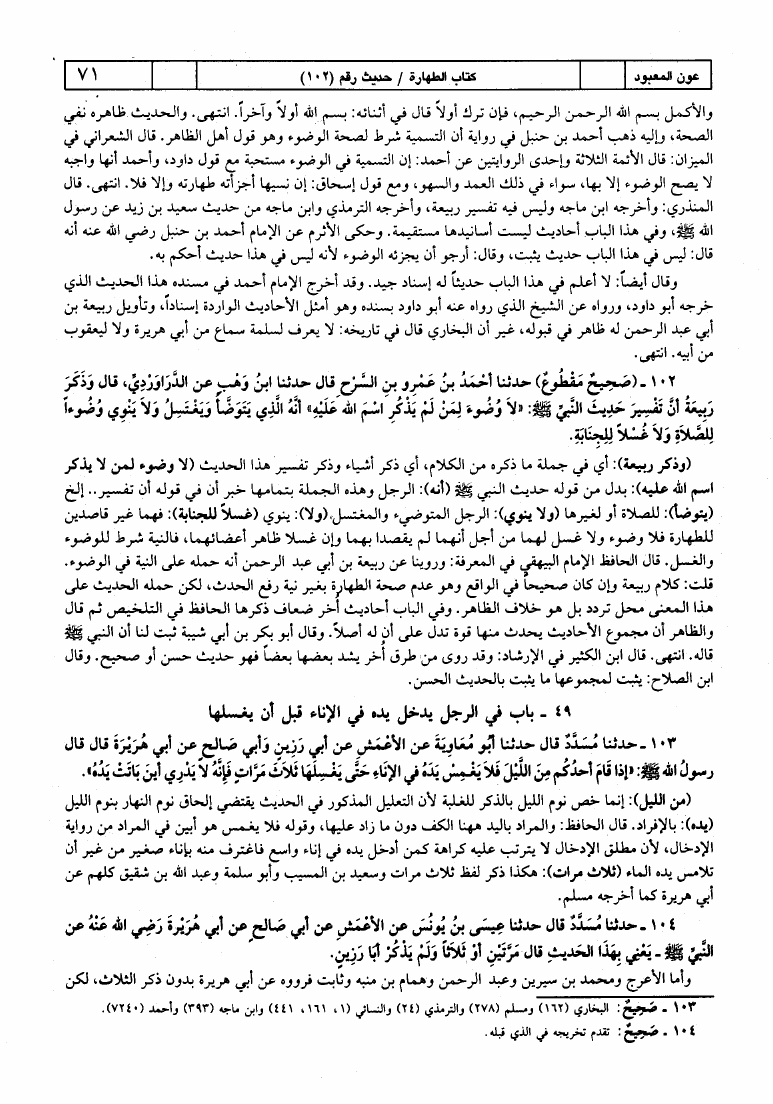 عون المعبود
كتاب الطهارة / حديث رقم (١٠٢)
٧١
والأكمل بسم الله الرحمن الرحيم، فإن ترك أولاً قال في أثنائه: بسم الله أولاً وآخراً. انتهى. والحديث ظاهره نفي
الصحة، وإليه ذهب أحمد بن حنبل في رواية أن التسمية شرط لصحة الوضوء وهو قول أهل الظاهر. قال الشعراني في
الميزان: قال الأئمة الثلاثة وإحدى الروايتين عن أحمد: إن التسمية في الوضوء مستحبة مع قول داود، وأحمد أنها واجبه
لا يصح الوضوء إلا بها، سواء في ذلك العمد والسهو، ومع قول إسحاق: إن نسيها أجزأته طهارته وإلا فلا. انتهى. قال
المنذري: وأخرجه ابن ماجه وليس فيه تفسير ربيعة، وأخرجه الترمذي وابن ماجه من حديث سعيد بن زيد عن رسول
الله ﷺ، وفي هذا الباب أحاديث ليست أسانيدها مستقيمة. وحكى الأثرم عن الإمام أحمد بن حنبل رضي الله عنه أنه
قال: ليس في هذا الباب حديث يثبت، وقال: أرجو أن يجزئه الوضوء لأنه ليس في هذا حديث أحكم به.
وقال أيضاً: لا أعلم في هذا الباب حديثاً له إسناد جيد. وقد أخرج الإمام أحمد في مسنده هذا الحديث الذي
خرجه أبو داود، ورواه عن الشيخ الذي رواه عنه أبو داود بسنده وهو أمثل الأحاديث الواردة إسناداً، وتأويل ربيعة بن
أبي عبد الرحمن له ظاهر في قبوله، غير أن البخاري قال في تاريخه: لا يعرف لسلمة سماع من أبي هريرة ولا ليعقوب
من أبيه. انتهى.
١٠٢ ـ (صَحِيحٌ مَقْطُوعٌ) حدثنا أحْمَدُ بنُ عَمْرِو بنِ السَّرْحِ قال حدثنا ابنُ وَهْبٍ عن الدَّرَاوَرْدِيِّ، قال وَذَكَرَ
رَبِيعَةُ أنَّ تَفْسِيرَ حَدِيثِ النَّبيِّ ﷺ: «لاَ وُضُوءَ لِمَنْ لَمْ يَذْكُرِ اسْمَ الله عَلَيْهِ» أنَّهُ الَّذِي يَتَوَضَّأُ وَيَغْتَسِلُ وَلاَ يَنْوِي وُضُوءاً
لِلصَّلاَةِ وَلاَ غُسْلاً لِلْجَنَابَةِ.
(وذكر ربيعة): أي في جملة ما ذكره من الكلام، أي ذكر أشياء وذكر تفسير هذا الحديث (لا وضوء لمن لا يذكر
اسم الله عليه): بدل من قوله حديث النبي ﷺ (أنه): الرجل وهذه الجملة بتمامها خبر أن في قوله أن تفسير.. إلخ
(يتوضأ): للصلاة أو لغيرها (ولا ينوي): الرجل المتوضيء والمغتسل (ولا): ينوي (غسلاً للجنابة): فهما غير قاصدين
للطهارة فلا وضوء ولا غسل لهما من أجل أنهما لم يقصدا بهما وإن غسلا ظاهر أعضائهما، فالنية شرط للوضوء
والغسل. قال الحافظ الإمام البيهقي في المعرفة: وروينا عن ربيعة بن أبي عبد الرحمن أنه حمله على النية في الوضوء.
قلت: كلام ربيعة وإن كان صحيحاً في الواقع وهو عدم صحة الطهارة بغير نية رفع الحدث، لكن حمله الحديث على
هذا المعنى محل تردد بل هو خلاف الظاهر. وفي الباب أحاديث أُخر ضعاف ذكرها الحافظ في التلخيص ثم قال
والظاهر أن مجموع الأحاديث يحدث منها قوة تدل على أن له أصلاً. وقال أبو بكر بن أبي شيبة ثبت لنا أن النبي ﷺ
قاله. انتهى. قال ابن الكثير في الإرشاد: وقد روى من طرق أُخر يشد بعضها بعضاً فهو حديث حسن أو صحيح. وقال
ابن الصلاح: يثبت لمجموعها ما يثبت بالحديث الحسن.
٤٩ ـ باب في الرجل يدخل يده في الإناء قبل أن يغسلها
١٠٣ ـ حدثنا مُسَدَّدٌ قال حدثنا أبُو مُعَاوِيَةَ عن الأعْمَشِ عن أبي رَزِينٍ وَأبي صَالحٍ عن أبي هُرَيْرَةَ قال قال
رسولُ الله ﷺ: «إذا قَامَ أحَدُكُم مِنَ اللَّيْلِ فَلاَ يَغْمِسْ يَدَهُ في الإنَاءِ حَتَّى يَغْسِلَهَا ثَلاَثَ مَرَّاتٍ فإنَّهُ لاَ يَدْرِي أينَ بَاتَتْ يَدُهُ».
(من الليل): إنما خص نوم الليل بالذكر للغلبة لأن التعليل المذكور في الحديث يقتضي إلحاق نوم النهار بنوم الليل
(يده): بالإفراد. قال الحافظ: والمراد باليد ههنا الكف دون ما زاد عليها، وقوله فلا يغمس هو أبين في المراد من رواية
الإدخال، لأن مطلق الإدخال لا يترتب عليه كراهة كمن أدخل يده في إناء واسع فاغترف منه بإناء صغير من غير أن
تلامس يده الماء (ثلاث مرات): هكذا ذكر لفظ ثلاث مرات وسعيد بن المسيب وأبو سلمة وعبد الله بن شقيق كلهم عن
أبي هريرة كما أخرجه مسلم.
١٠٤ ـ حدثنا مُسَدَّدٌ قال حدثنا عِيسَى بنُ يُونُسَ عن الأعْمَشِ عن أبي صَالحٍ عن أبي هُرَيْرَةَ رَضِي الله عَنْهُ عن
النَّبيِّ ﷺ ـ يَعْنِي بِهَذَا الحَدِيثِ قال مَرَّتَيْنِ أوْ ثَلاَثاً وَلَمْ يَذْكُرْ أبَا رَزِينٍ.
وأما الأعرج ومحمد بن سيرين وعبد الرحمن وهمام بن منبه وثابت فرووه عن أبي هريرة بدون ذكر الثلاث، لكن
١٠٣ ـ صَحِيحٌ: البخاري (١٦٢) ومسلم (٢٧٨) والترمذي (٢٤) والنسائي (١، ١٦١، ٤٤١) وابن ماجه (٣٩٣) وأحمد (٧٢٤٠).
١٠٤ ـ صَحِيحٌ: تقدم تخريجه في الذي قبله.